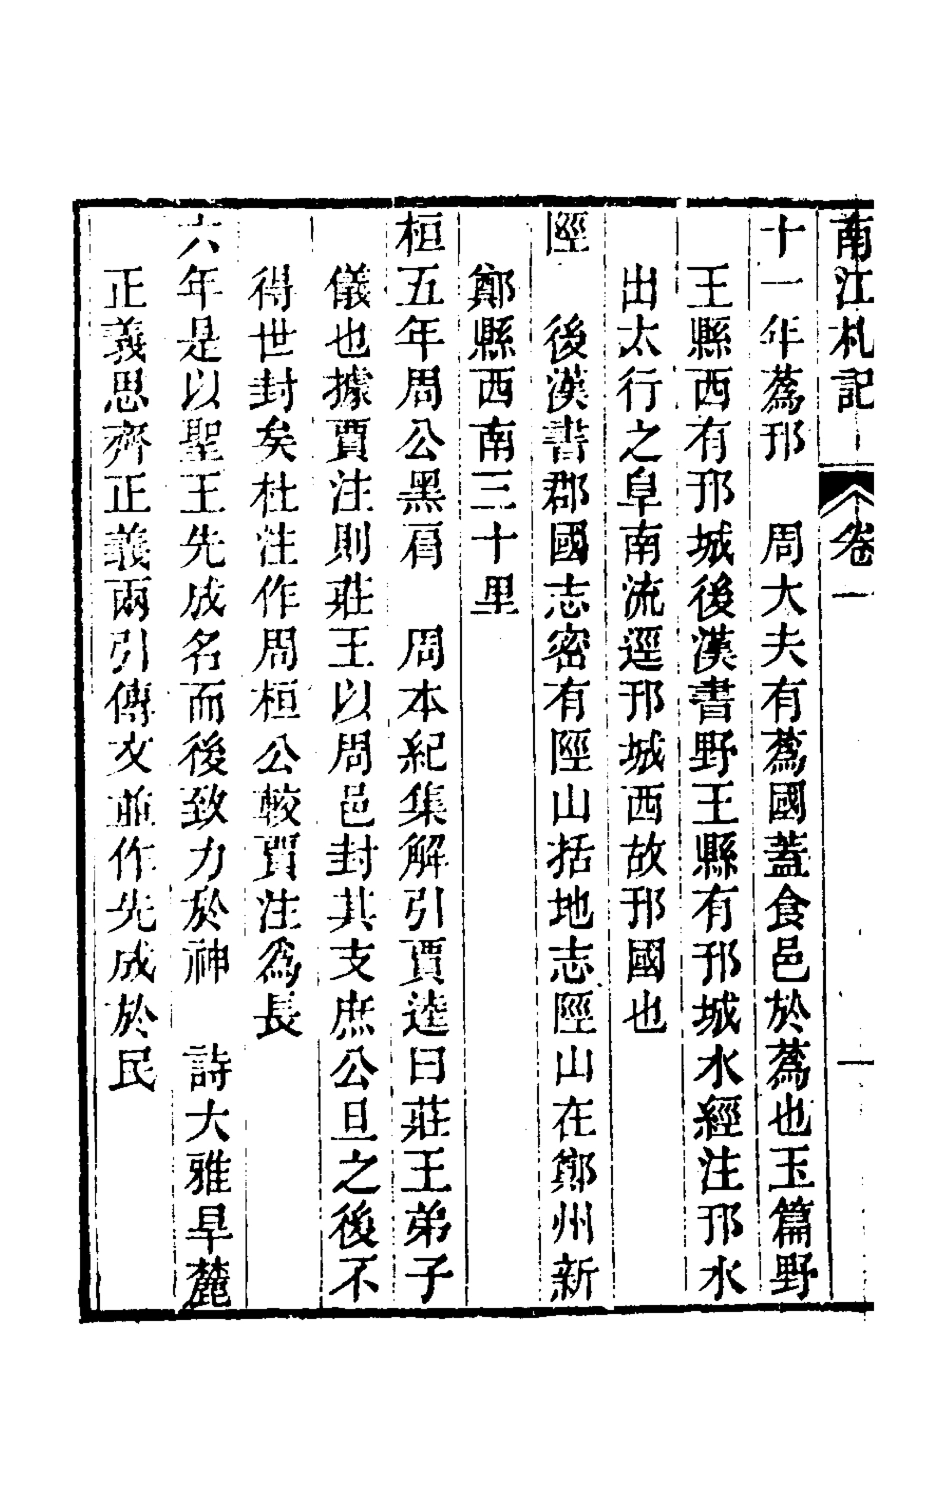 南江札記 卷一 一
十一年蔿邘 周大夫有蔿國蓋食邑於蔿也玉篇野
王縣西有邘城後漢書野王縣有邘城水經注邘水
出太行之阜南流逕邘城西故邘國也
陘 後漢書郡國志密有陘山括地志陘山在鄭州新
鄭縣西南三十里
桓五年周公黑肩 周本紀集解引賈逵曰莊王弟子
儀也據賈注則莊王以周邑封其支庶公旦之後不
得世封矣杜注作周桓公較賈注爲長
六年是以聖王先成名而後致力於神 詩大雅旱麓
正義思齊正義兩引傳文並作先成於民